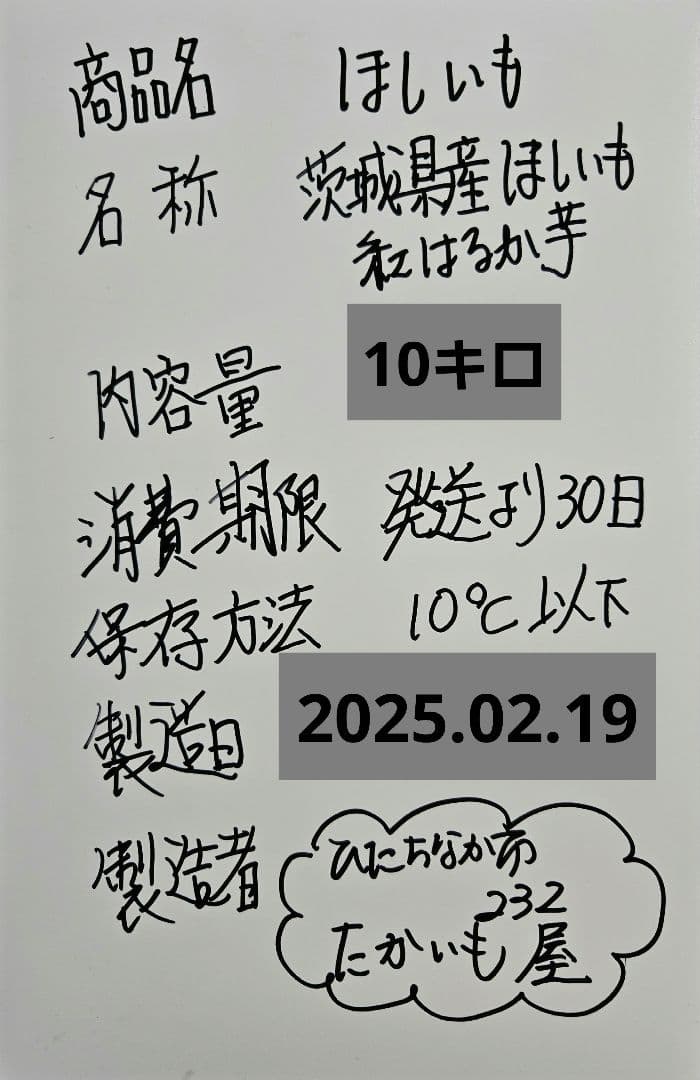 商品名 ほしいも
名称 茨城県産ほしいも
紅はるか芋
内容量 10キロ
消費期限 発送より30日
保存方法 10℃以下
製造日 2025.02.19
製造者 ひたちなか市
232
たかいも屋